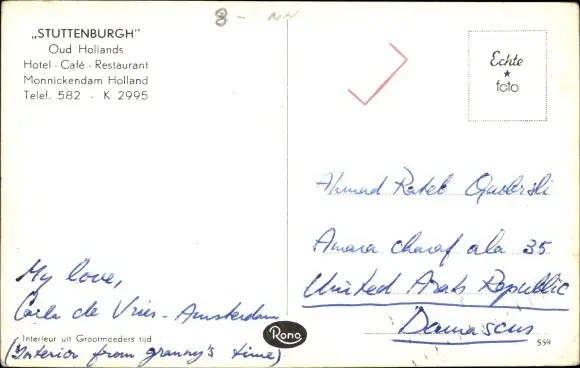 8 -
„STUTTENBURGH"
Oud Hollands
Hotel - Café - Restaurant
Monnickendam Holland
Telef. 582 - K 2995
Echte
foto
Ahmad Rateb
Amara charaf ala 35
United Arab Republic
Damascus
My love,
Carla de Vries - Amsterdam
Interieur uit Grootmoeders tijd
(Interior from granny's time)
Rono
559